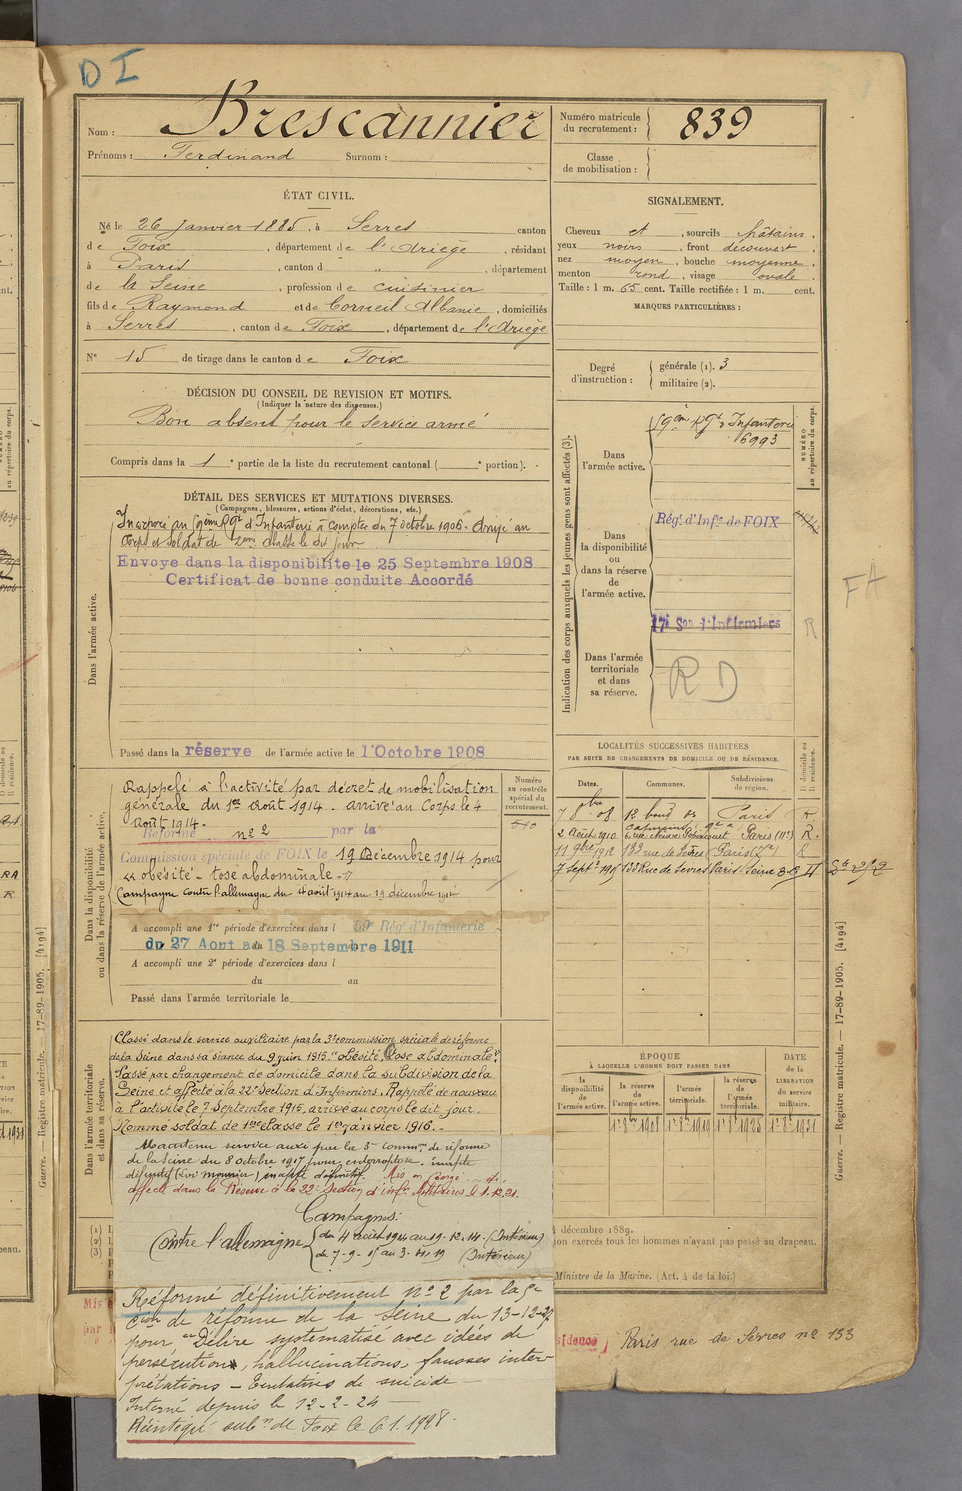 D I
Nom : Brescannier
Prénoms : Ferdinand Surnom :
Numéro matricule du recrutement : 839
Classe de mobilisation :
ÉTAT CIVIL.
Né le 26 Janvier 1885, à Serres canton
de Foix, département de l'Ariège, résidant
à Paris, canton d ", département
de la Seine, profession de cuisinier
fils de Raymond et de Corneil Albanie, domiciliés
à Serres, canton de Foix, département de l'Ariège
N° 15 de tirage dans le canton de Foix
SIGNALEMENT.
Cheveux et, sourcils châtains,
yeux noirs, front découvert,
nez moyen, bouche moyenne,
menton rond, visage ovale.
Taille : 1 m. 65 cent. Taille rectifiée : 1 m. cent.
MARQUES PARTICULIÈRES :
Degré d'instruction : générale (1). 3
militaire (2).
DÉCISION DU CONSEIL DE REVISION ET MOTIFS.
(Indiquer la nature des dispenses.)
Bon absent pour le service armé
Compris dans la 1 e partie de la liste du recrutement cantonal ( e portion).
DÉTAIL DES SERVICES ET MUTATIONS DIVERSES.
(Campagnes, blessures, actions d'éclat, décorations, etc.)
Incorporé au 59ème Rgt d'Infanterie à compter du 7 octobre 1906. Arrivé au
corps et soldat de 2ème classe le dit jour.
Envoyé dans la disponibilité le 25 Septembre 1908
Certificat de bonne conduite Accordé
Dans l'armée active.
Passé dans la réserve de l'armée active le 1er Octobre 1908
Indication des corps auxquels les jeunes gens sont affectés (3).
NUMÉRO au répertoire du corps.
Dans l'armée active.
59em Rgt d'Infanterie
6993
Dans la disponibilité ou dans la réserve de l'armée active.
Régt d'Infie de FOIX
17e Son d'Infirmiers
R
FA
Dans l'armée territoriale et dans sa réserve.
RD
LOCALITÉS SUCCESSIVES HABITÉES
PAR SUITE DE CHANGEMENTS DE DOMICILE OU DE RÉSIDENCE.
Dates. Communes. Subdivisions de région. D domicile ou R résidence.
7 8bre 08 12 boud Paris R
2 Août 1910 Paris R.
11 9bre 1912 133 rue de Sèvres Paris (7e) R
7 Septe 1915 133 Rue de Sevres Paris Seine
Dans la disponibilité ou dans la réserve de l'armée active.
Numéro au contrôle spécial du recrutement.
Rappelé à l'activité par décret de mobilisation
générale du 1er Août 1914. arrivé au Corps le 4
Août 1914.
Réformé n° 2 par la
Commission spéciale de FOIX le 19 Décembre 1914 pour
"obésité - tose abdominale -"
Campagne contre l'allemagne du 4 août 1914 au 19 décembre 1914
A accompli une 1re période d'exercices dans l 59e Régt d'Infanterie
du 27 Aout au 18 Septembre 1911
A accompli une 2e période d'exercices dans l
du au
Passé dans l'armée territoriale le
Dans l'armée territoriale et dans sa réserve.
Classé dans le service auxiliaire par la 3e commission spéciale de réforme
de la Seine dans sa séance du 9 juin 1915 "obésité, tose abdominale"
Passé par changement de domicile dans la subdivision de la
Seine et affecté à la 22e Section d'Infirmiers. Rappelé de nouveau
à l'activité le 7 Septembre 1915, arrivé au corps le dit jour.
Nommé soldat de 1ère classe le 1er janvier 1916.
Maintenu service auxi par la 3me Common de réforme
de la Seine du 8 octobre 1917 pour enteroptose. inapte
définitif (Loi Mourier) inapte définitif.
affecté dans la Réserve à la 22e Section d'Infs Militaires le 1.12.21.
Campagnes:
Contre l'allemagne du 4 août 1914 au 19.12.14. (Intérieur)
du 7-9-15 au 3. 19 (Intérieur)
Réformé définitivement n° 2 par la
de réforme de la Seine du 13-12-27
pour "Délire systématisé avec idées de
persécution, hallucinations, fausses inter-
prétations - Tentatives de suicide -
Interné depuis le 12-2-24 -
Réintégré subon de Foix le 6.1.1928.
ÉPOQUE
À LAQUELLE L'HOMME DOIT PASSER DANS
la disponibilité de l'armée active. la réserve de l'armée active. l'armée territoriale. la réserve de l'armée territoriale. DATE de la LIBÉRATION du service militaire.
1er 8bre 1908 1er 8bre 1919 1er 8bre 1925 1er 8bre 1931
4 décembre 1889.
ion exercés tous les hommes n'ayant pas passé au drapeau.
Ministre de la Marine. (Art. 4 de la loi.)
sidence Paris rue de Sèvres n° 133
Guerre. — Registre matricule. — 17-89-1905. [4194]
Guerre. Registre matricule. 17-89-1905. [4194]